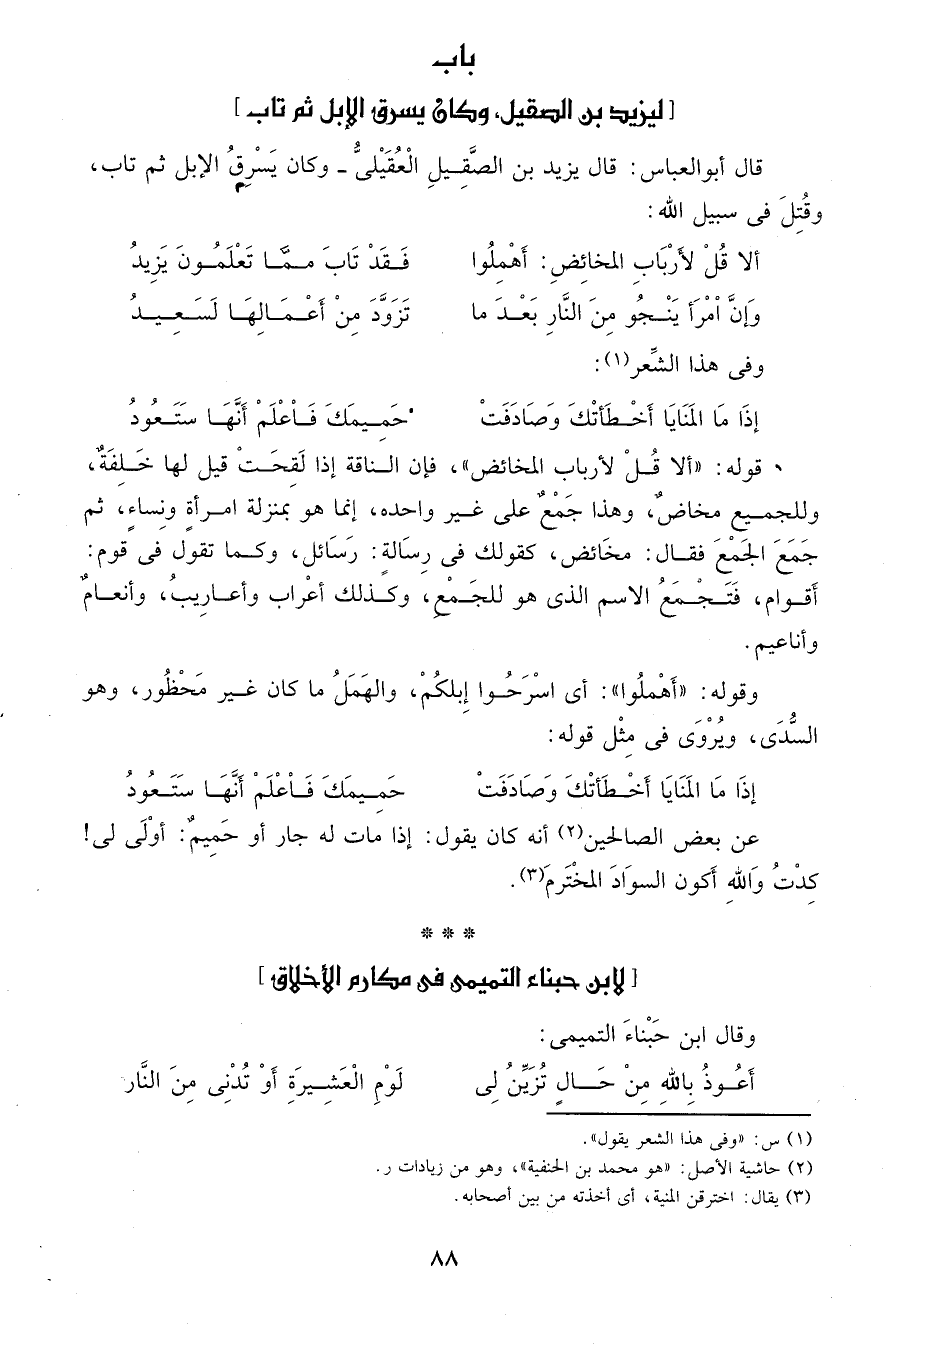 باب
[ليزيد بن الصقيل، وكان يسرق الإبل ثم تاب]
قال أبوالعباس: قال يزيد بن الصَّقِيلِ الْعُقَيْلىُّ ـ وكان يَسْرِقُ الإبل ثم تاب،
وقُتِلَ فى سبيل الله:
ألا قُلْ لأرْبابِ المخائضِ: أَهْمِلُوا فَقَدْ تَابَ مـمَّـا تَعْلَمُـونَ يَزِيدُ
وَإِنَّ امْرَأ يَنْـجُو مِنَ النَّارِ بَعْـدَ ما تَزوَّدَ مِنْ أَعْـمَـالِهَـا لَسَـعِـيـدُ
وفى هذا الشِّعر(١):
إذَا مَا المَنَايَا أخْـطَأَتْكَ وَصَادَفَتْ حَمِـيـمَكَ فَـاعْلَمْ أَنَّهَـا سَتَعُودُ
قوله: «ألا قُـلْ لأرباب المخائض»، فإن النـاقة إذا لَقِحَـتْ قيل لها خَـلِفَةٌ،
وللجميع مخاضٌ، وهذا جَمْعٌ على غير واحده، إنما هو بمنزلة امـرأةٍ ونساءٍ، ثم
جَمَعَ الجَمْعَ فقـال: مخائض، كقولك فى رِسالة: رَسائل، وكـما تقول فى قوم:
أقـوام، فَتَـجْمَعُ الاسم الذى هو للجَـمْعِ، وكـذلك أعْراب وأعـاريبُ، وأنعـامٌ
وأناعيم.
وقوله: «أَهْمِلُوا»: أى اسْرَحُـوا إبلكُمْ، والهَمَلُ ما كان غير مَحْظُور، وهو
السُّدَى، ويُرْوَى فى مِثْل قوله:
إذَا مَا المَنَايَا أخْـطَأَتْكَ وَصَادَفَتْ حَمِـيـمَكَ فَـاعْلَمْ أَنَّهَـا سَتَعُودُ
عن بعض الصالحين(٢) أنه كان يقول: إذا مات له جار أو حَمِيمٌ: أوْلَى لى!
كِدْتُ وَاللهِ أَكون السوَادَ المخْتَرمَ(٣).
* * *
[لابن حبناء التميمى فى مكارم الأخلاق]
وقال ابن حَبْناءَ التميمى:
أَعُـوذُ بِاللهِ مِنْ حَـالٍ تُزَيِّنُ لِى لَوْمَ الْعَشِـيرَةِ أَوْ تُدْنِى مِنَ النَّار
(١) س: «وفى هذا الشعر يقول».
(٢) حاشية الأصل: «هو محمد بن الحنفية»، وهو من زيادات ر.
(٣) يقال: اخترقن المنية، أى أخذته من بين أصحابه.
٨٨